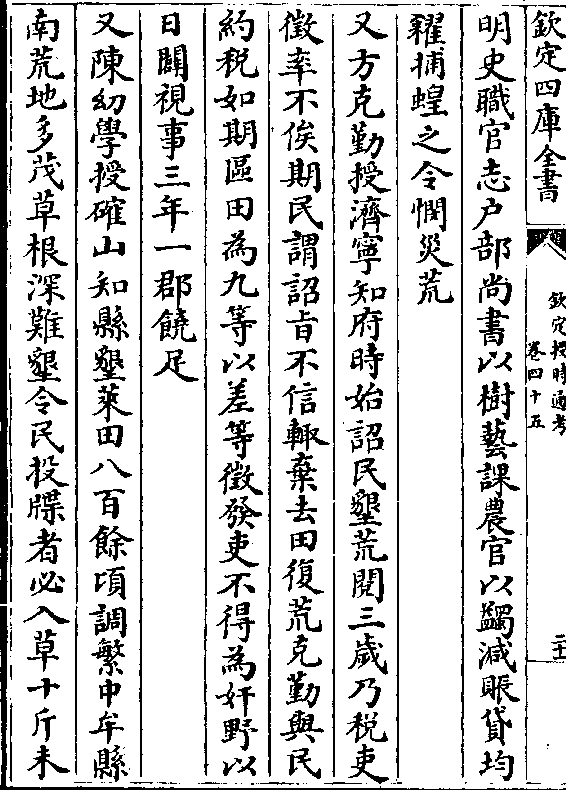 欽定四庫全書
欽定授時通考
卷四十五
二十
明史職官志户部尚書以樹藝課農官以蠲減賑貸均
糴捕蝗之令憫災荒
又方克勤授濟寧知府時始詔民墾荒閱三歲乃税吏
徵率不俟期民謂詔㫖不信輙棄去田復荒克勤與民
約税如期區田為九等以差等徵發吏不得為奸野以
日闢視事三年一郡饒足
又陳幼學授確山知縣墾萊田八百餘頃調繁中牟縣
南荒地多茂草根深難墾令民投牒者必入草十斤未